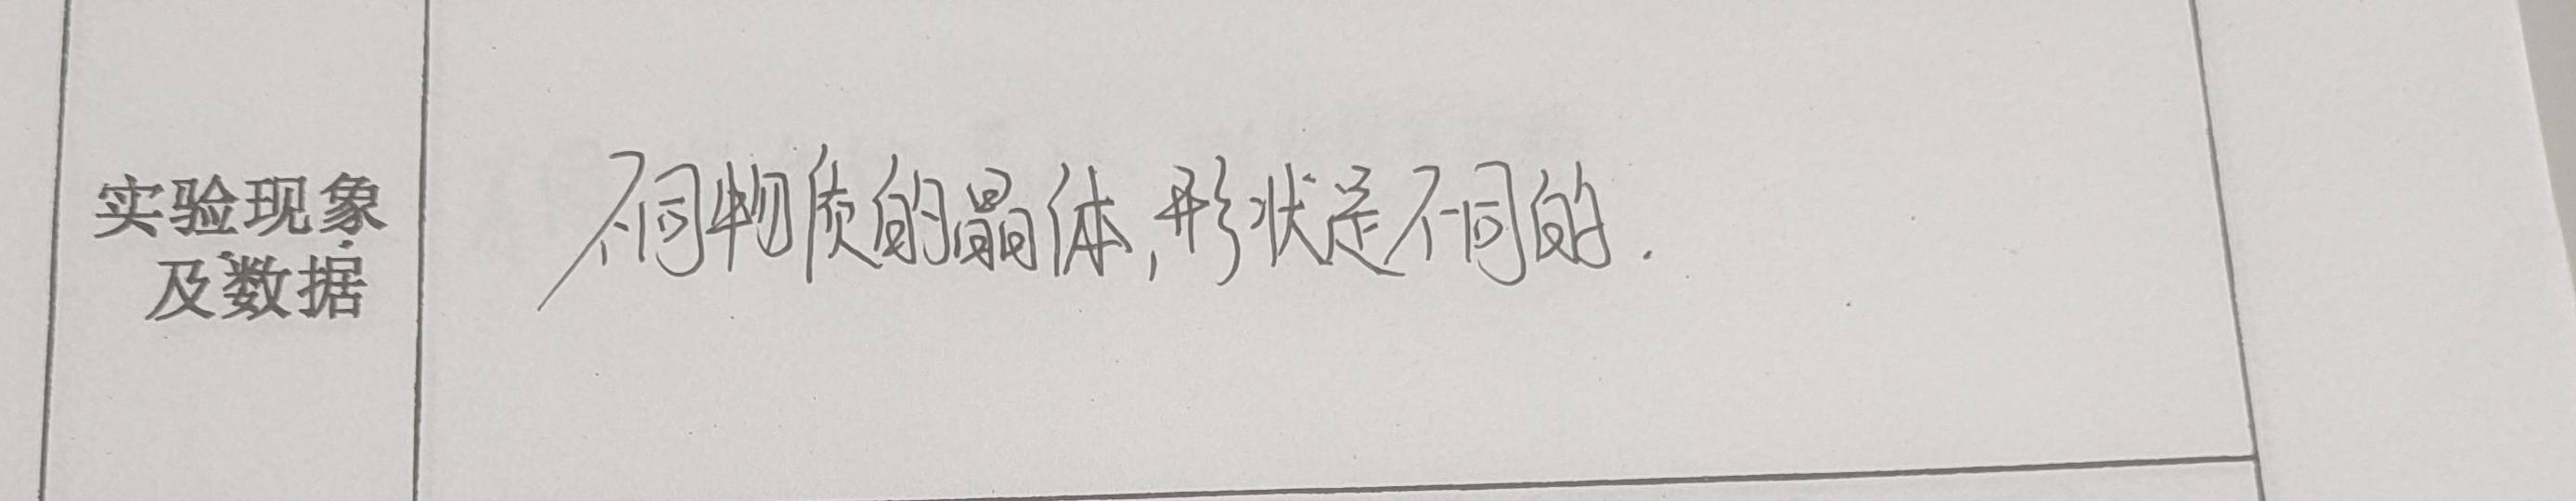 实验现象
及数据
不同物质的晶体,形状是不同的.